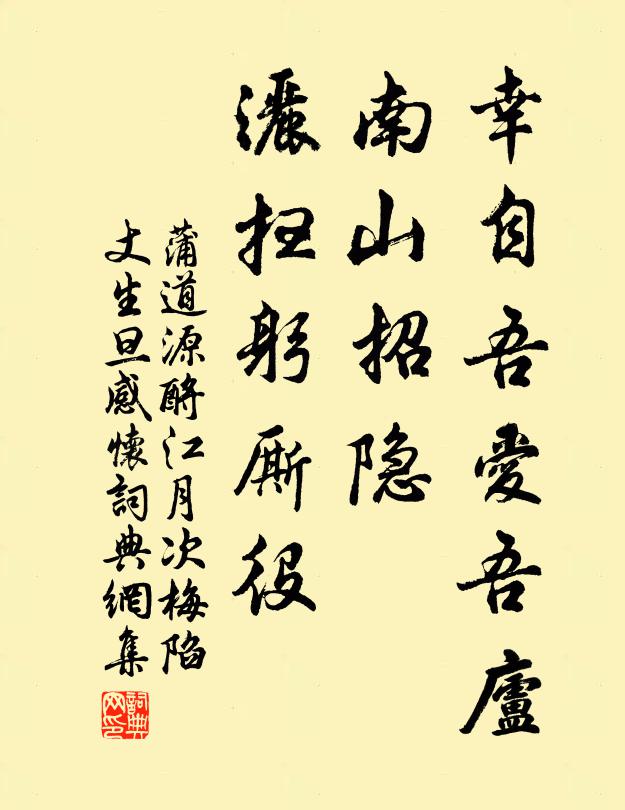 幸自吾愛吾廬
南山招隐
灑扫躬厮役
蒲道源酹江月次梅陷
丈生旦感懷詞典網集
詞典网印